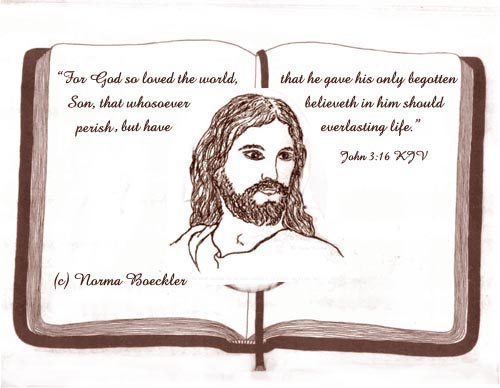 “For God so loved the world, that he gave his only begotten
Son, that whosoever believeth in him should
perish, but have everlasting life.”
John 3:16 KJV
(c) Norma Boeckler